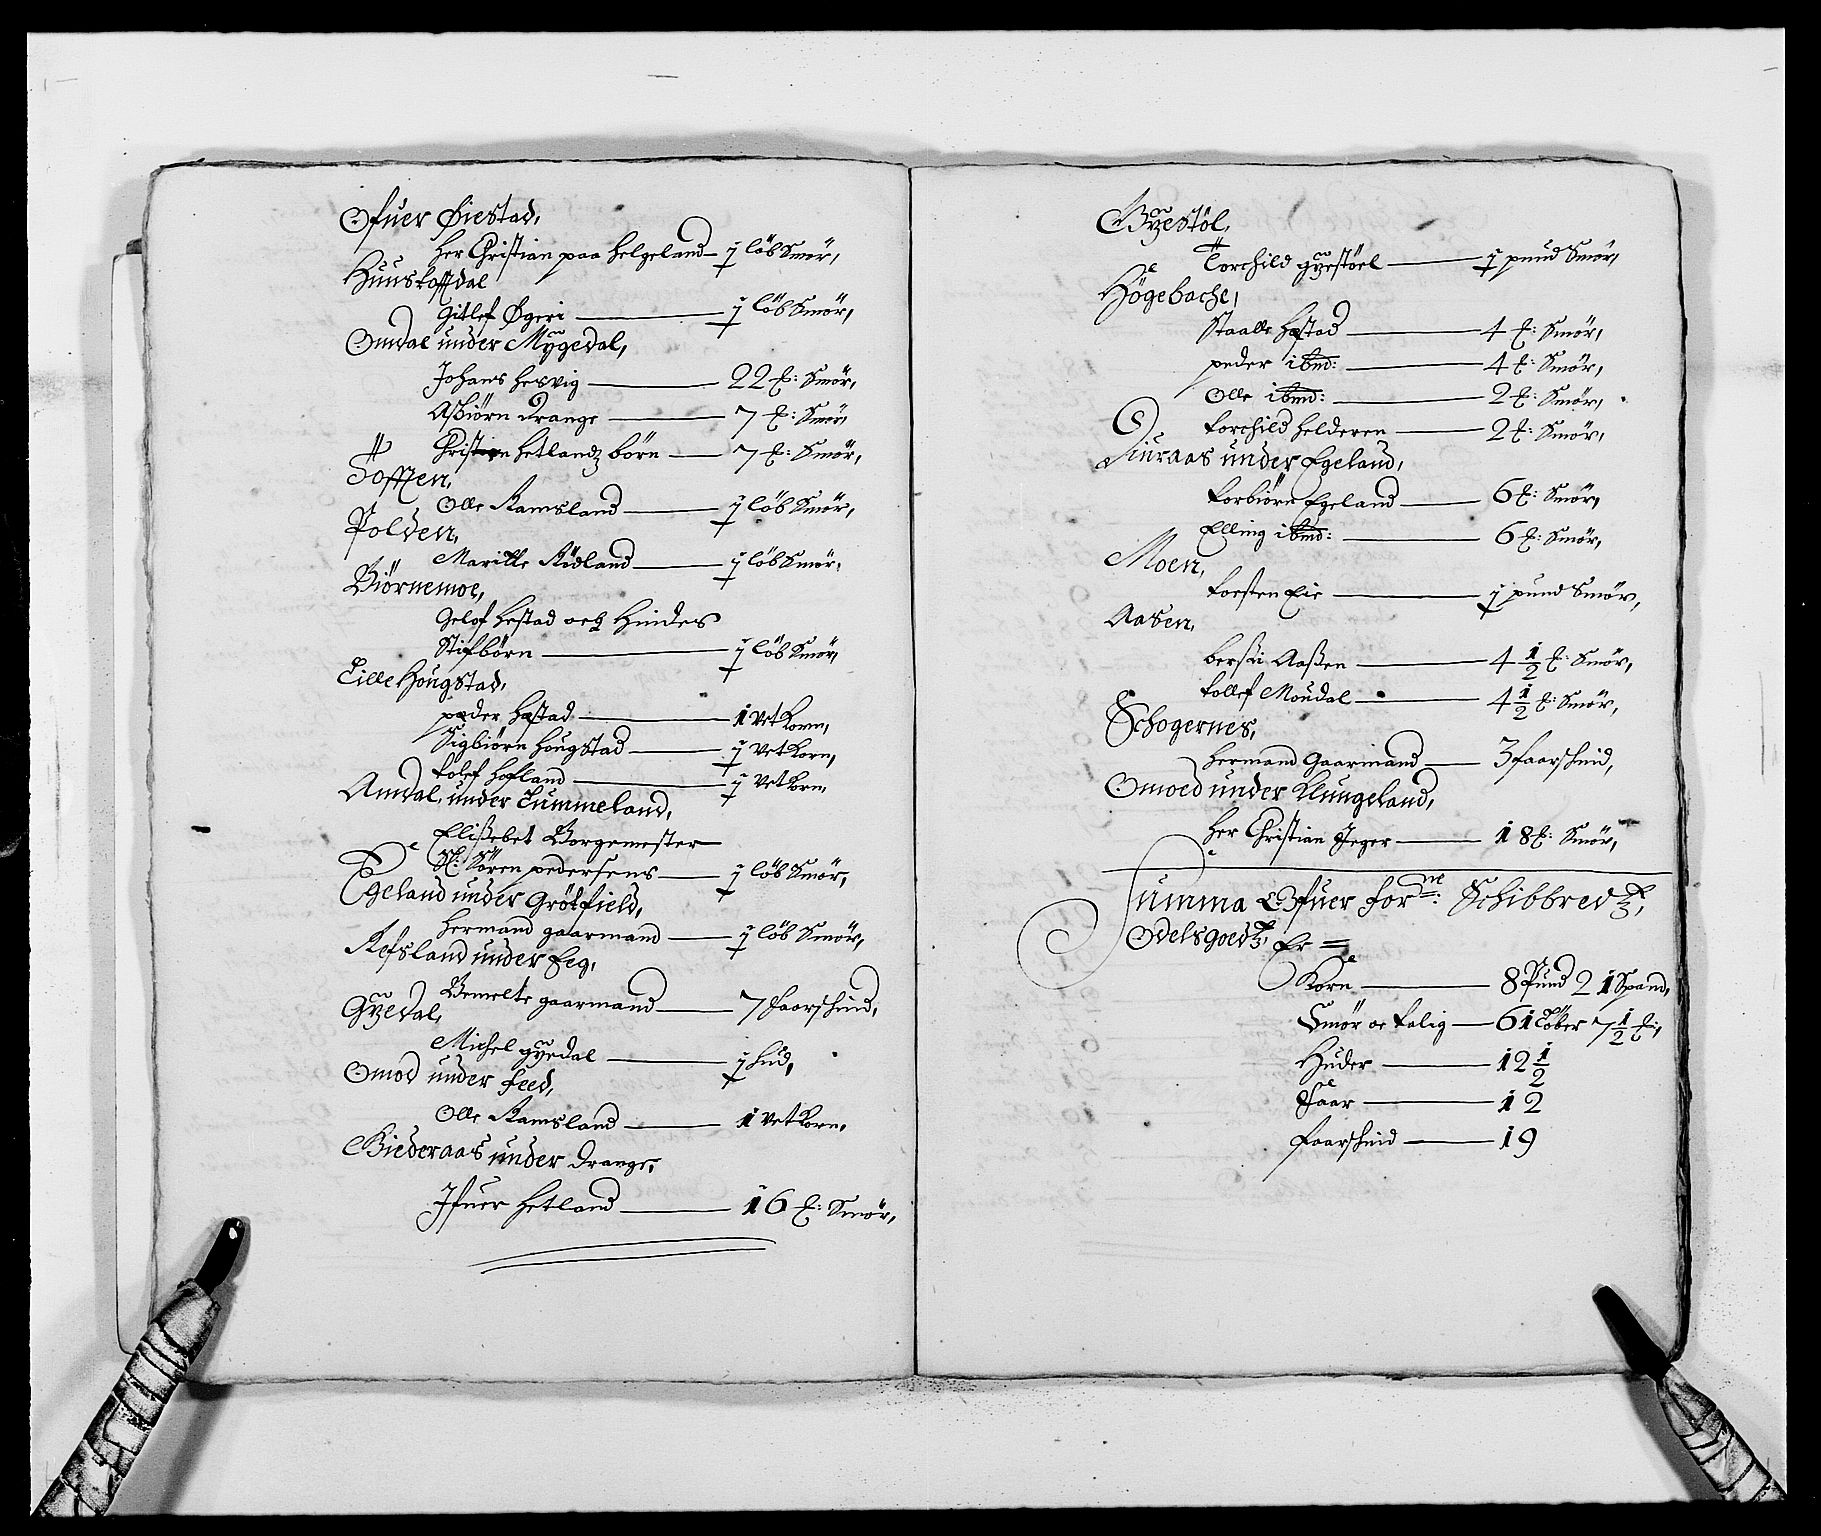 Ofuer Øiestad,
Her Christian paa Helgeland — ½ löb Smör,
Huuskaffdal
Gitlef Øgeri — ½ löb Smör,
Omdal under Mÿgedal,
Johans Hesvig — 22 ℔: Smör,
Asbiörn Drange — 7 ℔: Smör,
Christen Hetlandz börn — 7 ℔: Smör,
Tofften,
Olle Ramsland — ½ löb Smör,
Polden,
Maritte Rödland — ½ löb Smör,
Biörnemoe,
Gelof Hestad och Hindes
Stifbörn — ½ löb Smör,
Lille Hougstad,
peder Hæstad — 1 Vet Korn,
Sigbiörn Hougstad — ½ Vet Korn,
tolef Hofland — ½ Vet Korn,
Amdal, under Lummeland,
Elißebet Borgemester
Sl: Sören pedersens — ½ löb Smör,
Egeland under Grötfield,
Hermand gaarmand — ½ löb Smör,
Refsland under Eeg,
Bemelte gaarmand — 7 faarschind,
Gÿedal,
Michel gÿedal — ½ hud,
Omod under feed,
Olle Ramsland — 1 Vet Korn,
Biederaas under Drange,
Ifuer Hetland — 16 ℔: Smör,
Gÿestöl,
Torchild gÿestöel — ½ pund Smör,
Högebache,
Staalle Hæstad — 4 ℔: Smör,
peder ibmd: — 4 ℔: Smör,
Olle ibmd: — 2 ℔: Smör,
torchild Helderen — 2 ℔: Smör,
Diuraas under Egeland,
torbiörn Egeland — 6 ℔: Smör,
Elling ibmd: — 6 ℔: Smör,
Moen,
torsten Eie — ½ pund Smör,
Aasen,
Aaßen — 4 1/2 ℔: Smör,
tollef Moudal — 4 1/2 ℔: Smör,
Schogernes,
Hermand Gaarmand — 3 faarschind,
Omoed under Klungeland,
Her Christian Jeger — 18 ℔: Smör,
Summa Ofuer forne: Schibbredtz,
Odelsgoedtz, Er =
Korn — 8 Pund 21 Spand,
Smör oc talig — 61 Löber 7 1/2 ℔:
Huder — 12 1/2
Faar — 12
faarschind — 19